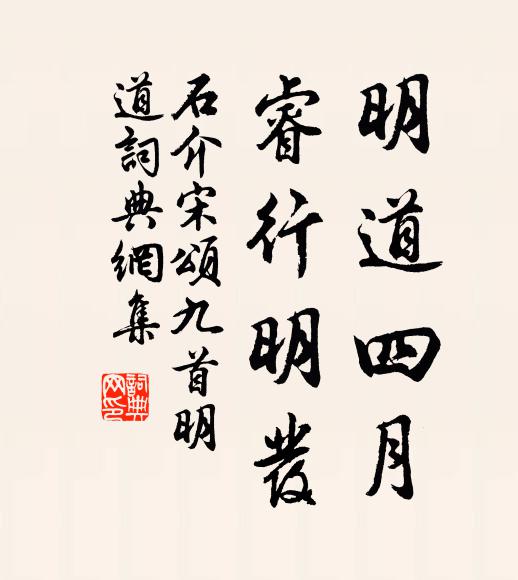 明道四月
睿行明發
石介宋頌九首明
道詞典網集
詞典
网印